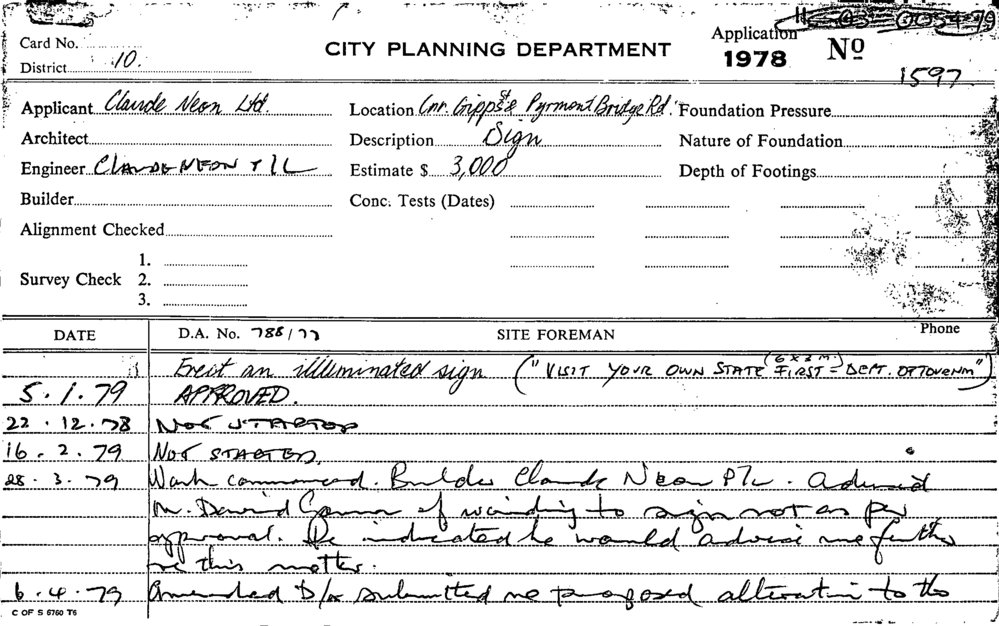 Card No.
CITY PLANNING DEPARTMENT
Application
1978 Nº
1597
District 10.
Applicant Claude Neon Ltd.
Location Cnr. Gipps St & Pyrmont Bridge Rd.
Foundation Pressure
Architect
Description Sign
Nature of Foundation
Engineer CLAUDE NEON P/L
Estimate $ 3,000
Depth of Footings
Builder
Conc. Tests (Dates)
Alignment Checked
Survey Check 1.
2.
3.
DATE D.A. No. 788/77 SITE FOREMAN Phone
Erect an illuminated sign ("VISIT YOUR OWN STATE FIRST = DEPT. OF TOURISM") (6 x 3 M.)
5.1.79 APPROVED.
22.12.78 NOT STARTED
16.2.79 NOT STARTED.
28.3.79 Work commenced. Builder Claude Neon P/L. advised
Mr. David of wording to sign not as per
approval. He indicated he would advise me further
re this matter.
6.4.79 Amended D/A submitted re proposed alteration to the
C OF S 6760 T6